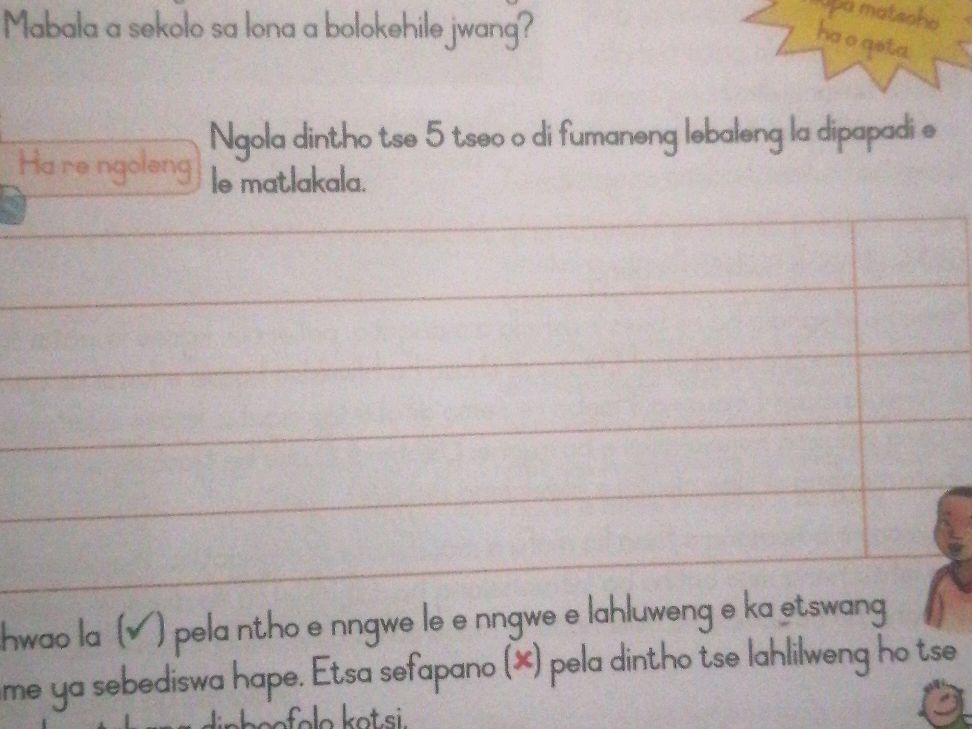 Mabala a sekolo sa lona a bolokehile jwang?
matsoho
ha o qeta
Ha re ngoleng
Ngola dintho tse 5 tseo o di fumaneng lebaleng la dipapadi e
le matlakala.
la (✓) pela ntho e nngwe le e nngwe e lahluweng e ka etswang
ya sebediswa hape. Etsa sefapano (✗) pela dintho tse lahlilweng ho tse
diphoofolo kotsi.